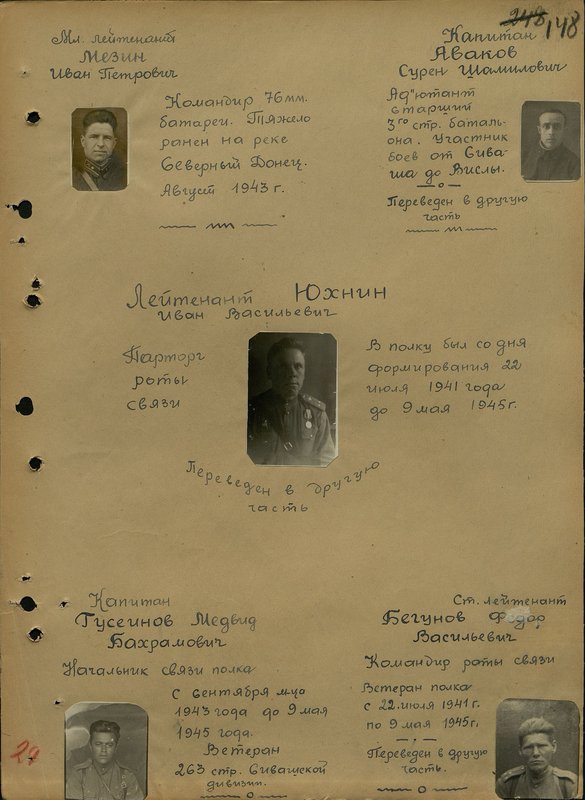 248 148
Мл. лейтенант
Мезин
Иван Петрович
Командир 76 мм.
батареи. Тяжело
ранен на реке
Северный Донец.
Август 1943 г.
Капитан
Аваков
Сурен Шамилович
Ад"ютант
старший
3го стр. баталь-
она. Участник
боев от Сива-
ша до Вислы.
Переведен в другую
часть
Лейтенант Юхнин
Иван Васильевич
Парторг
роты
связи
В полку был со дня
формирования 22
июля 1941 года
до 9 мая 1945 г.
Переведен в другую
часть
Капитан
Гусеинов Медвид
Бахрамович
Начальник связи полка
С сентября м-ца
1943 года до 9 мая
1945 года.
Ветеран
263 стр. Сивашской
дивизии.
Ст. лейтенант
Бегунов Федор
Васильевич
Командир роты связи
Ветеран полка
с 22 июля 1941 г.
по 9 мая 1945 г.
Переведен в другую
часть.
29